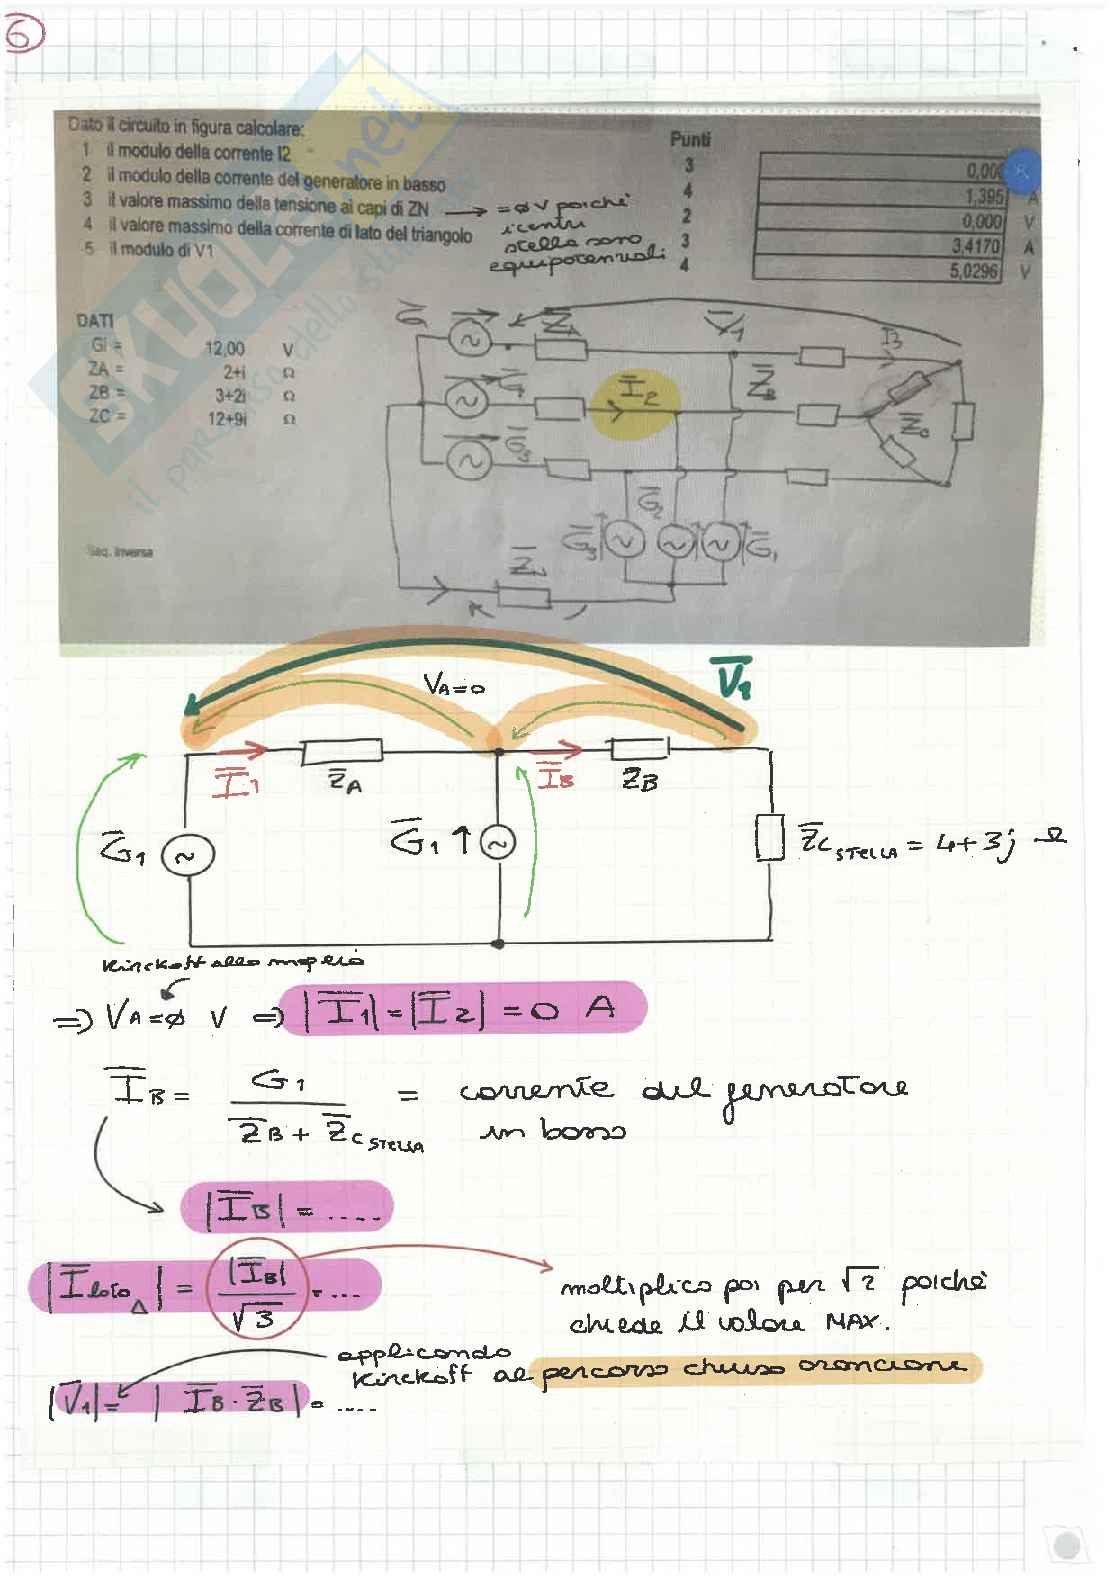 6
Dato il circuito in figura calcolare:
Punti
1 il modulo della corrente I2
3
0,000
2 il modulo della corrente del generatore in basso
4
1,395 A
3 il valore massimo della tensione ai capi di ZN → = ø V poiché i centri stella sono equipotenziali
2
0,000 V
4 il valore massimo della corrente di lato del triangolo
3
3,4170 A
5 il modulo di V1
4
5,0296 V
DATI
Gi = 12,00 V
ZA = 2+i Ω
ZB = 3+2i Ω
ZC = 12+9i Ω
Seq. Inversa
SKUOLA.net
G
ZA
V1
I3
I2
ZB
ZC
G3
G2
G3
G1
V1
VA=0
I1
ZA
IB
ZB
G1
G1
ZC STELLA = 4+3j Ω
Kirckoff alla maglia
⇒ VA=ø V ⇒ |I1|=|I2|=0 A
IB = G1 / (ZB + ZC STELLA) = corrente del generatore in basso
|IB| = ....
|I lato Δ| = |IB| / √3 = ...
moltiplico poi per √2 poiché
chiede il valore MAX.
applicando
Kirckoff al percorso chiuso arancione
|V1| = | IB · ZB | = ....